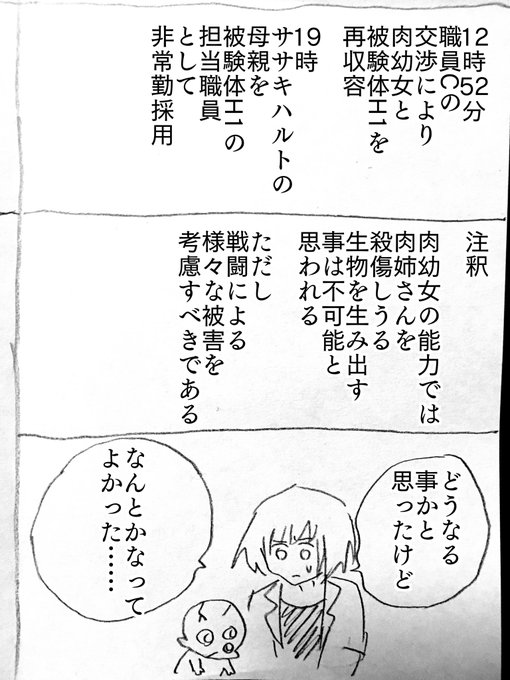 12時52分
職員Cの
交渉により
肉幼女と
被験体H1を
再収容
19時
ササキハルトの
母親を
被験体H1の
担当職員
として
非常勤採用
注釈
肉幼女の能力では
肉姉さんを
殺傷しうる
生物を生み出す
事は不可能と
思われる
ただし
戦闘による
様々な被害を
考慮すべきである
どうなる
事かと
思ったけど
なんとかなって
よかった……